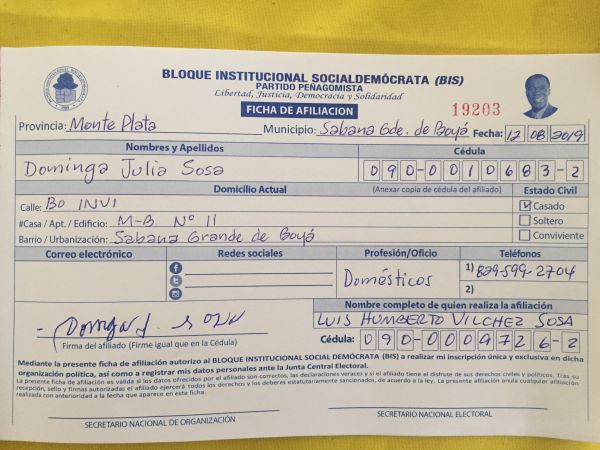 BLOQUE INSTITUCIONAL SOCIALDEMÓCRATA (BIS)
PARTIDO PEÑAGOMISTA
Libertad, Justicia, Democracia y Solidaridad
FICHA DE AFILIACION
19203
Provincia: Monte Plata Municipio: Sabana Gde. de Boyá Fecha: 12 08 2019
Nombres y Apellidos Cédula
Dominga Julia Sosa 090-0010683-2
Domicilio Actual (Anexar copia de cédula del afiliado) Estado Civil
Calle: Bo INVI Casado
#Casa / Apt. / Edificio: M-B Nº 11 Soltero
Barrio / Urbanización: Sabana Grande de Boyá Conviviente
Correo electrónico Redes sociales Profesión/Oficio Teléfonos
Domésticos 1) 829-599-2704
2)
Nombre completo de quien realiza la afiliación
LUIS HUMBERTO VILCHEZ SOSA
Firma del afiliado (Firme igual que en la Cédula) Cédula: 090-0009726-2
Mediante la presente ficha de afiliación autorizo al BLOQUE INSTITUCIONAL SOCIAL DEMÓCRATA (BIS) a realizar mi inscripción única y exclusiva en dicha
organización política, así como a registrar mis datos personales ante la Junta Central Electoral.
La presente ficha de afiliación es válida si los datos ofrecidos por el afiliado son correctos, las declaraciones veraces y si el afiliado tiene el disfrute de sus derechos civiles y políticos. Tras su
recepción, sello y firmas autorizadas el afiliado ejercerá todos los derechos y los deberes estatutariamente sancionados, de acuerdo a la ley. La presente afiliación anula cualquier afiliación
realizada con anterioridad a la fecha que aparece en esta ficha.
SECRETARIO NACIONAL DE ORGANIZACIÓN SECRETARIO NACIONAL ELECTORAL